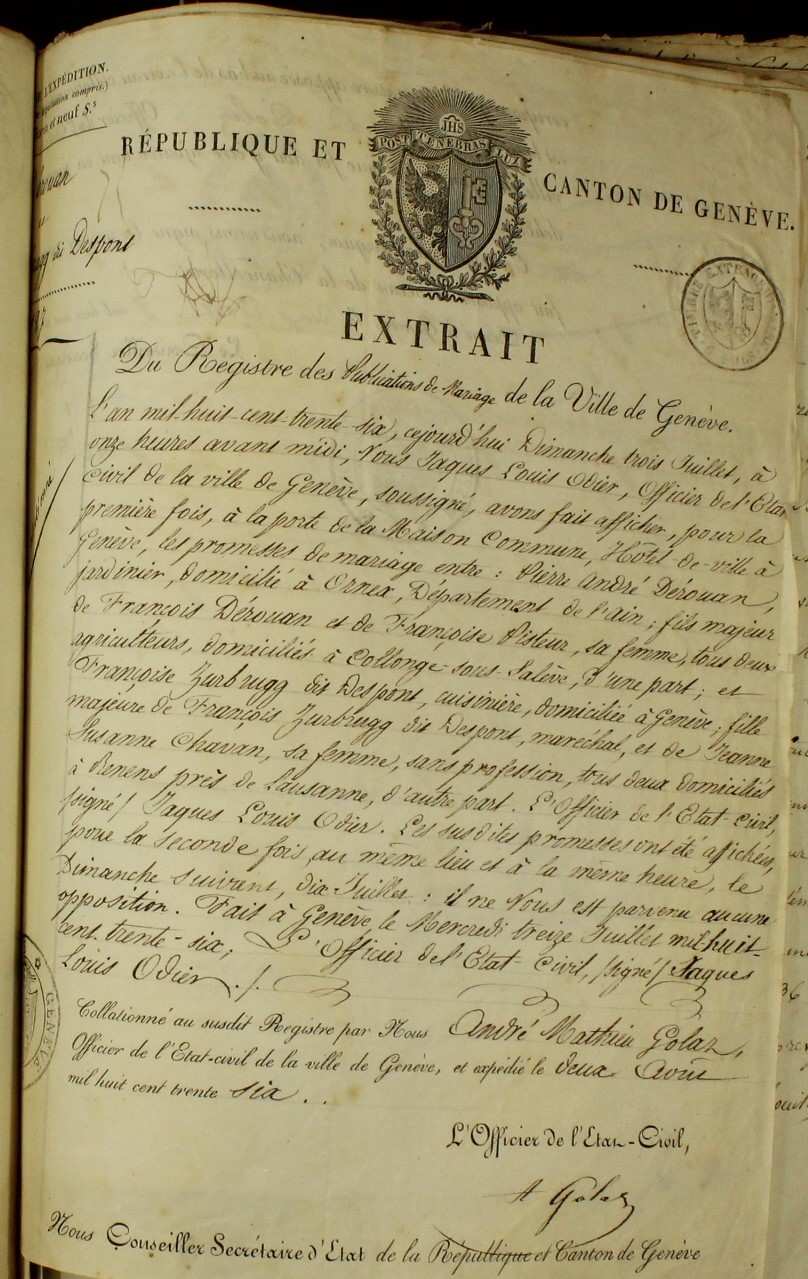 L'EXPÉDITION.
compris.)
et neuf S.s
RÉPUBLIQUE ET
JHS
POST TENEBRAS LUX
CANTON DE GENÈVE.
di Despons
EXTRAIT
Du Régistre des Publications de Mariage de la Ville de Genève.
L'an mil-huit-cent-trente-six, cejourd'hui Dimanche trois Juillet, à
onze heures avant midi, Nous Jaques Louis Odier, Officier de l'Etat
Civil de la ville de Genève, soussigné, avons fait afficher, pour la
première fois, à la porte de la Maison Commune, Hôtel-de-ville à
Genève, les promesses de mariage entre : Pierre André Dérouan,
jardinier, domicilié à Ornex, Département de l'ain ; fils majeur
de François Dérouan et de Françoise Pisteur, sa femme, tous deux
agriculteurs, domiciliés à Collonge-sous-Salève, d'une part ; et
Françoise Zurbrugg dit Despons, cuisinière, domiciliée à Genève, fille
majeure de François Zurbrugg dit Despons, maréchal, et de Jeanne
Susanne Chavan, sa femme, sans profession, tous deux domiciliés
à Renens près de Lausanne, d'autre part. L'Officier de l'Etat-Civil,
/signé/ Jaques Louis Odier. Les susdites promesses ont été affichées,
pour la seconde fois, au même lieu et à la même heure, le
Dimanche suivant, dix Juillet : il ne Nous est parvenu aucune
opposition. Fait à Genève, le Mercredi treize Juillet mil-huit-
cent-trente-six ; L'Officier de l'Etat-Civil, /signé/ Jaques
Louis Odier ./.
Collationné au susdit Registre par Nous André Mathieu Golaz,
Officier de l'Etat-civil de la ville de Genève, et expédié le deux Août
mil huit cent trente six . .
GENÈVE
L'Officier de l'Etat-Civil,
A Golaz
Nous Conseiller Secrétaire d'Etat de la République et Canton de Genève